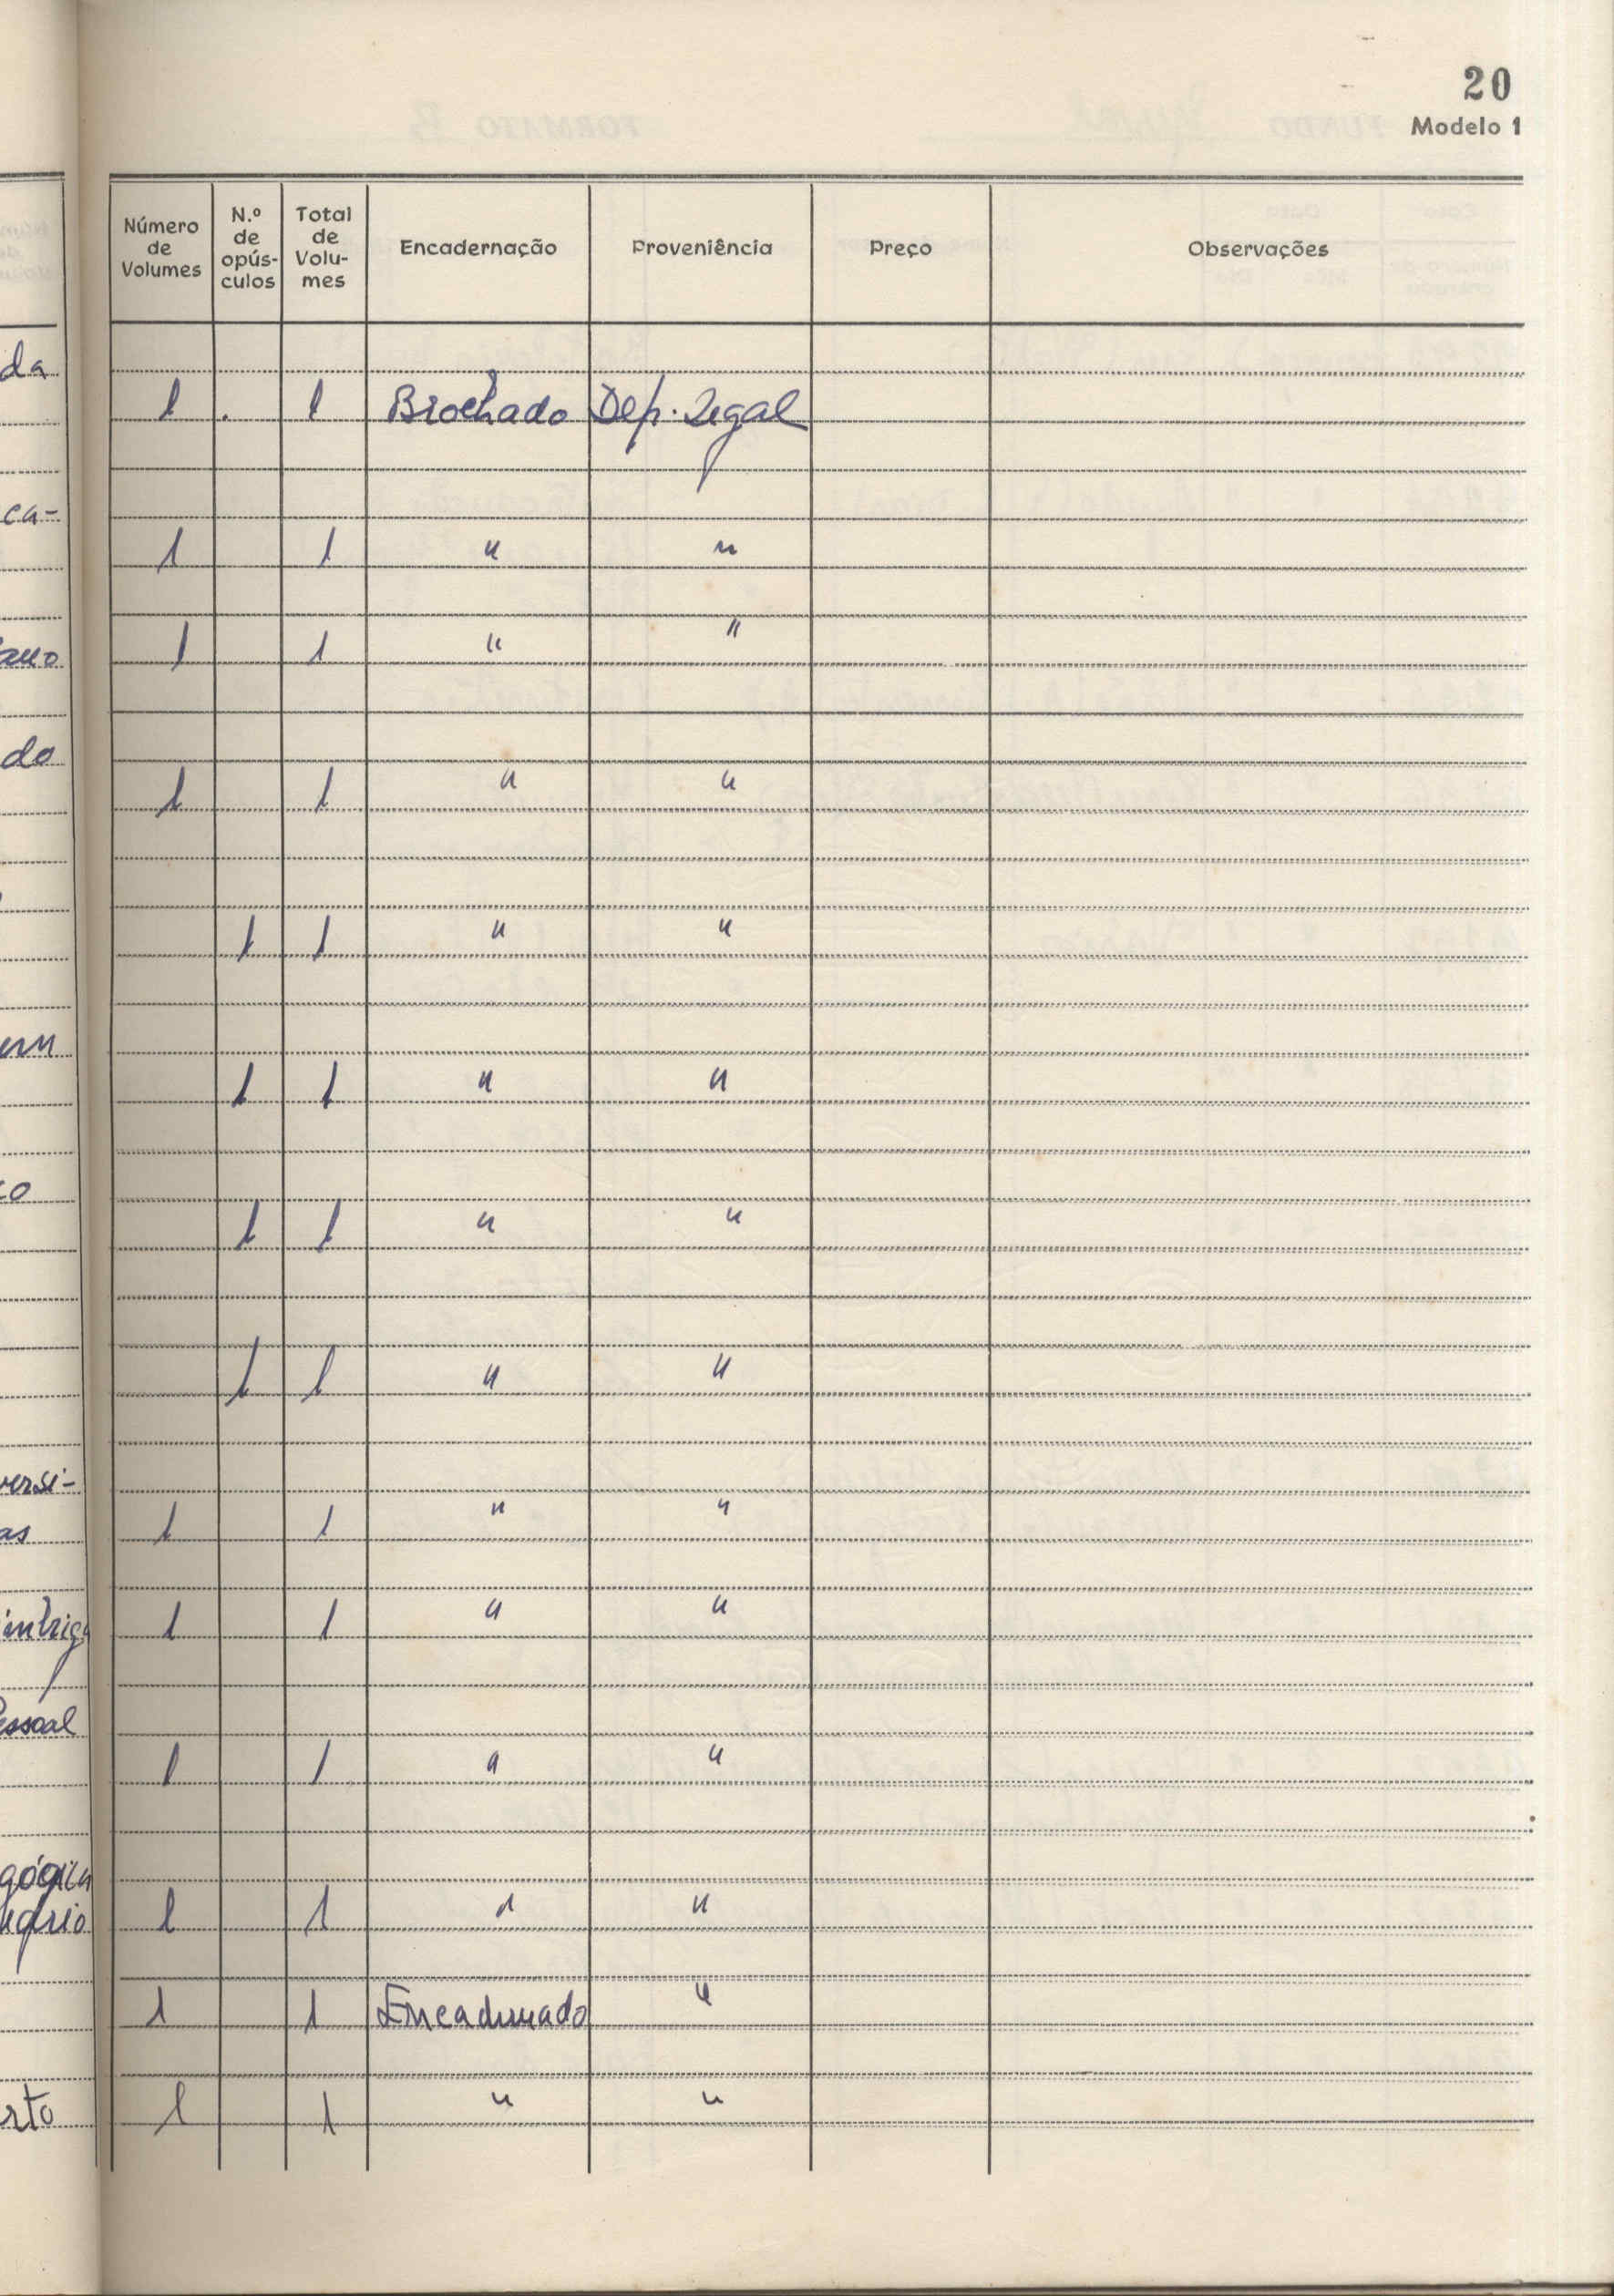 20
Modelo 1
Número de Volumes N.º de opús-culos Total de Volu-mes Encadernação Proveniência Preço Observações
da
1 . 1 Brochado Dep. Legal
ca-
1 1 " "
ano
1 1 " "
do
1 1 " "
1 1 " "
em
1 1 " "
co
1 1 " "
1 1 " "
versi-
as 1 1 " "
intriga 1 1 " "
Pessoal
1 1 " "
gógica
1 1 " "
1 1 Encadernado "
rto 1 1 " "